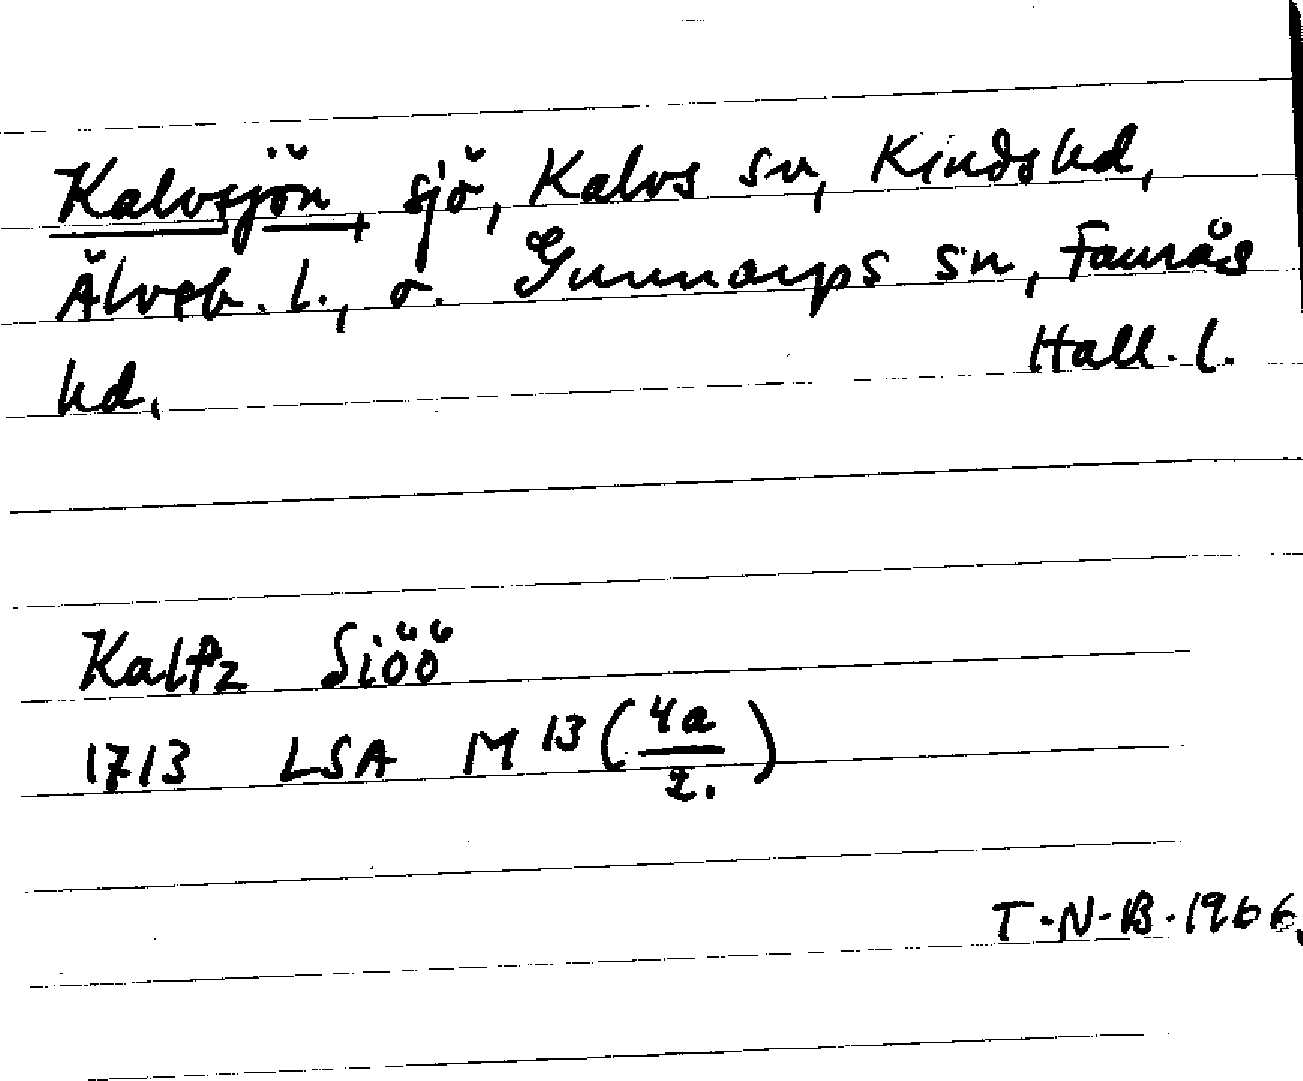 Kalvsjön, sjö, Kalvs sn, Kinds hd,
Älvsb. l., o. Gunnarps sn, Faurås
hd. Hall. l.
Kalfz Siöö
1713 LSA M 13 (4a/2.)
T.N.B. 1966.